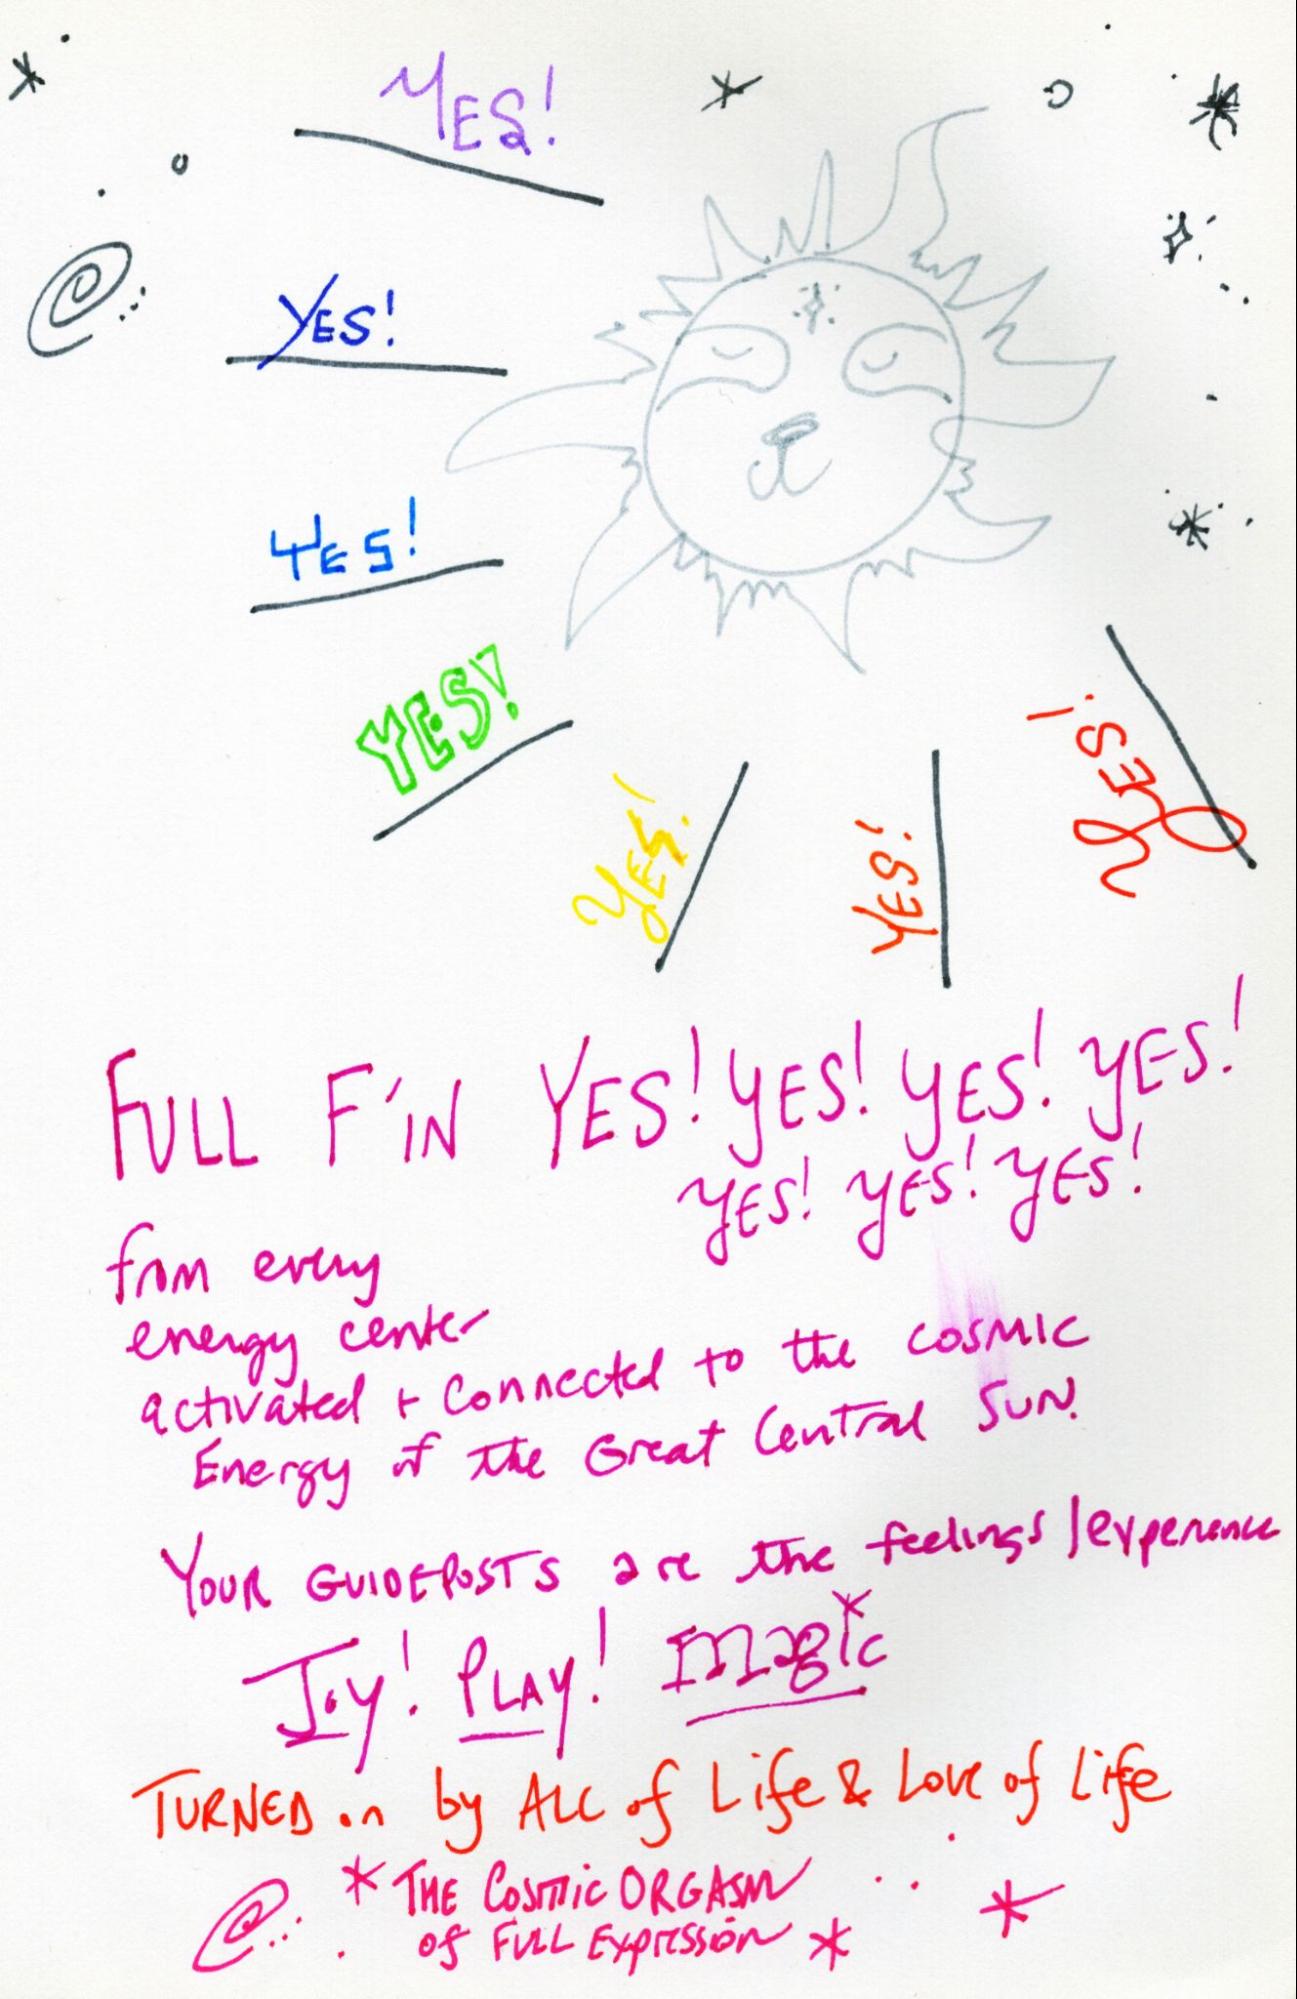 YES!
YES!
YES!
YES!
YES!
YES!
YES!
FULL F'IN YES! YES! YES! YES!
YES! YES! YES!
from every
energy center
activated + connected to the COSMIC
Energy of the Great Central SUN.
YOUR GUIDEPOSTS are the feelings/experience
JOY! PLAY! magic
TURNED on by ALL of Life & Love of Life
* THE COSMIC ORGASM
of FULL Expression *